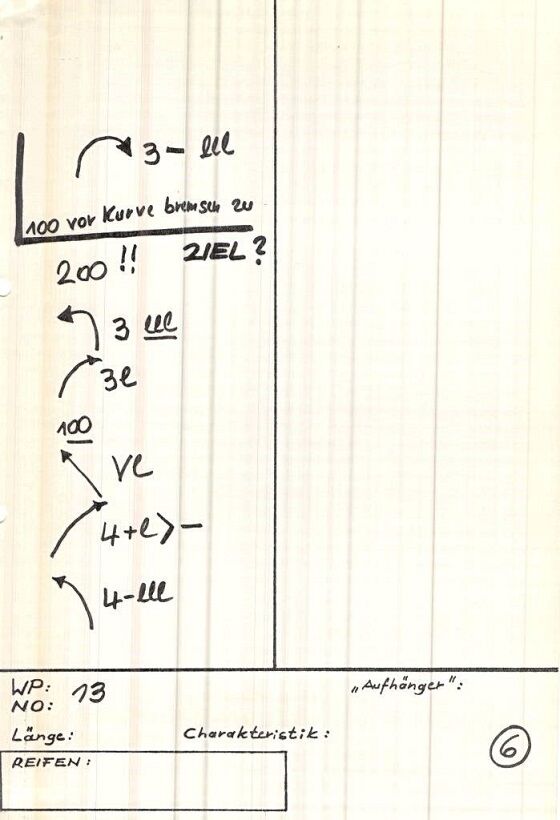 3 - lll
100 vor Kurve bremsen zu
200 !! ZIEL?
3 lll
3l
100
Vl
4+l>-
4-lll
WP: 13
NO:
"Aufhänger":
Länge: Charakteristik:
6
REIFEN: